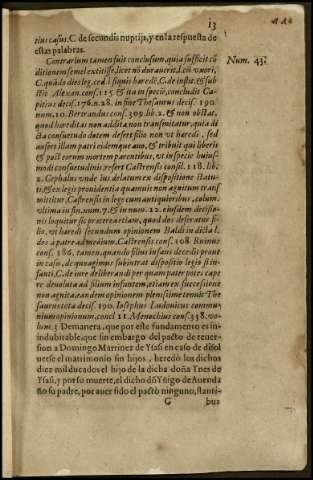 13
tius casus. C. de secundis nuptijs, y en la respuesta de
estas palabras.
Contrarium tamen fuit conclusum, quia sufficit cō
ditionem semel extitisse, licet nō duraverit. l. cū uxori,
C. quādo dies leg. ced. l. si quis haredē, C. de instit. & sub
stit. Alexan. cons. 115. & ita in specie, concludit Ca-
pitius decis. 176. n. 28. in fine Thesaurus decis. 190.
num. 10. Bertrandus cons. 309. lib. 2. & non obstat,
quod hereditas non addita non transmitatur, quia di
cta consuetudo dotem defert filio non ut haredi, sed
aufert illam patri eidemque avo, & tribuit qui liberis
& post eorum mortem parentibus, ut in specie huius-
modi consuetudinis refert Castrensis consil. 118. lib.
2. Cephalus unde ius delatum ex dispositione statu-
ti, & ex legis providentia quamuis non agnitum trans
mittitur, Castrensis in lege cum antiquioribus, colum.
ultima in fin. num. 7. & in num. 22. eiusdem decisio-
nis loquitur sic præterea etiam, quod dos deferatur fi-
lio, ut haredi secundum opinionem Baldi in dicta l.
dos a patre ad medium, Castrensis cons. 108. Ruinus
cons. 186. tamen, quando filius infans decedit prout
in casu, de quo agimus subintrat dispositio legis si in-
fanti, C. de iure deliberandi per quam pater potest cape
re devoluta ad filium infantem, etiam ex successione
non agnita, eandem opinionem plenissime tenuit The
saurus tota decis. 190. Iosephus Ludovicus commu-
nium opinionum, concl. 11. Menochius cons. 338. vo-
lum. 3. De manera, que por este fundamento es in-
indubitable, que sin embargo del pacto de rever-
sion a Domingo Martinez de Ysasi en caso de disol
verse el matrimonio sin hijos, heredó los dichos
diez mil ducados el hijo de la dicha doña Ynes de
Ysasi, y por su muerte, el dicho dō Yñigo de Auenda
ño su padre, por auer sido el pacto ninguno, stanti-
G bus
Num. 43.